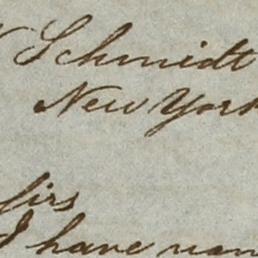 Schmidt
New York
Sirs
I have